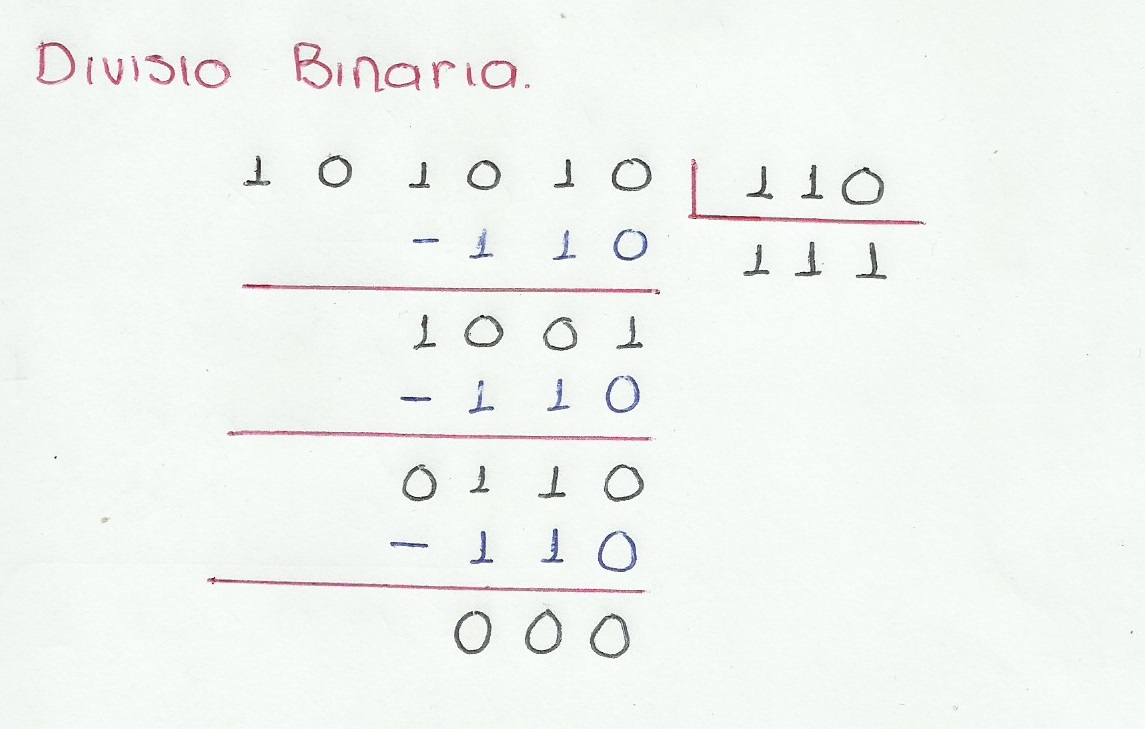 Divisio Binaria.
1 0 1 0 1 0 | 1 1 0
- 1 1 0
1 1 1
1 0 0 1
- 1 1 0
0 1 1 0
- 1 1 0
0 0 0